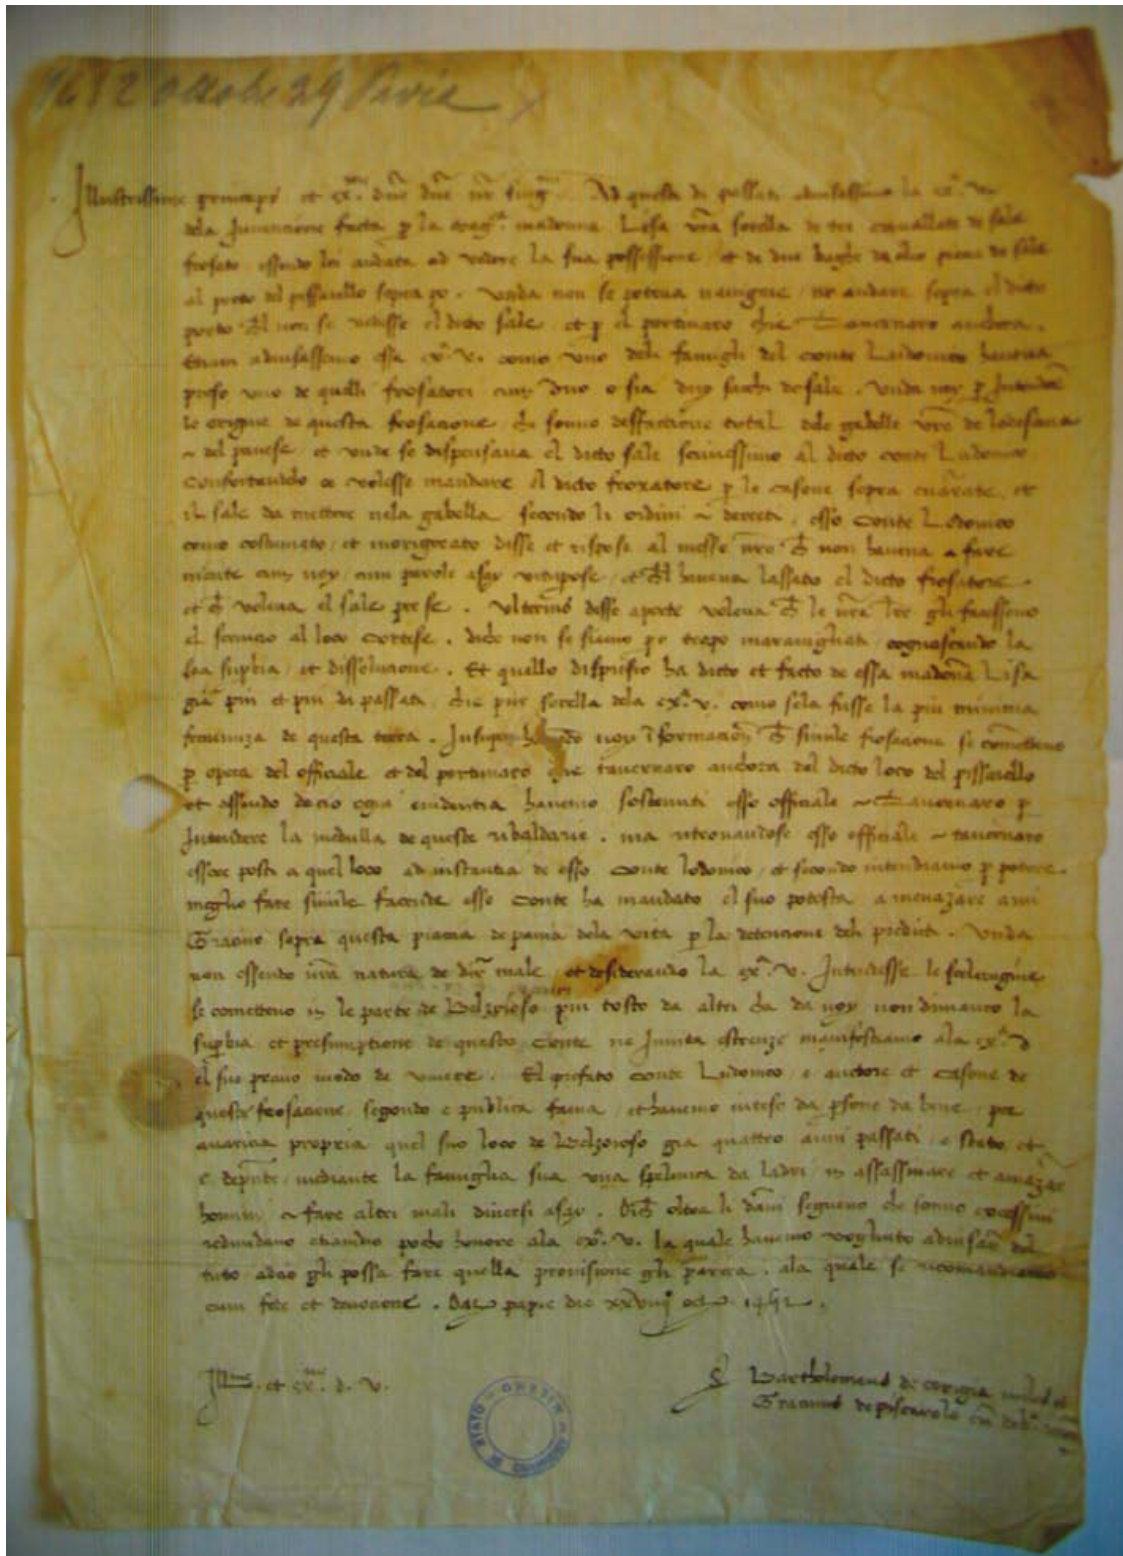 1452 Ottobre 29 Pavia
Illustrissime princeps et ex.me dne dne nr sing.me Ad questi di passati advisassimo la ex.a v.
dela Invencione facta p la mag.ca madonna Lisa vra sorella de tri cavallate de sale
frosato essendo lei andata ad vedere la sua possessione et de due baghe da olio piene de sale
al porto del pissarello sopra po. Unda non se poteva navigare ne andare sopra el dicto
porto ch'l non se vedesse el dicto sale et p el portinaro che Tavernaro anchora.
Etiam advisassemo essa ex.a v. como uno deli famigli del conte Ludovico haveva
preso uno de quelli frosatori cum duo o sia duy sachi de sale. Unda noy p Intendere
le origine de questa frosacione che sonno desfactione total dele gabelle vre de lodesana
~ del pavese et unde se dispensava el dicto sale scrivessimo al dicto conte Ludovico
Confortandolo volesse mandare el dicto froxatore p le casone sopra narrate et
il sale da mettere nela gabella secondo li ordini ~ decreti. esso Conte Lodovico
como costumato et morigerato disse et rispose al messe nro ch non haveva a fare
niente cum noy cum parole asay vitupose et ch'l haveva lassato el dicto frosatore.
et ch voleva el sale per se. Ulterius desse aperte voleva ch le nre lre gli facesseno
el servicio al loco Cortese. diche non se siamo po tropo maravigliati cognoscendo la
sua supbia et dissolucione. Et quello dispresio ha dicto et facto de essa madona Lisa
gia piu et piu di passati che pur sorella dela ex.a v. como se la fusse la piu minima
feminuza de questa terra. Insuper havendo noy Iformacion ch simile frosacione se cometteno
p opera del officiale et del portinaro che tavernaro anchora del dicto loco del pissarello
et essendo de cio ogni evidentia havemo sostenuti esso officiale ~ Tavernaro p
Intendere la medulla de queste ribaldarie. ma ritrovandose esso officiale ~ tavernaro
essere posti a quel loco ad instantia de esso Conte lodovico et secondo intendiamo p potere
meglio fare simile facende esso Conte ha mandato el suo potesta a menazare a mi
Gracino sopra questa piaza de pavia dela vita p la detencione deli predicti. Unda
non essendo nra natura de dir male et desiderando la ex.a v. Intendesse le sceleragine
se cometteno in le parte de Belzoioso piu tosto da altri cha da noy non dimanco la
supbia et presumptione de questo Conte ne Invita manifestiamo ala ex.a v
el suo pravo modo de vivere. El prefato Conte Ludovico e auctore et Casone de
queste frosacione segondo e publica fama et havemo inteso da psone da bene per
avaricia propria quel suo loco de Belzoioso gia quattro anni passati e stato et
e depnte mediante la famiglia sua una spelunca da ladri in assassinare et amazare
homini ~ fare altri mali diversi asay. Dich oltra li dani segueno che sonno excessivi
redundano etiandio pocho honore ala ex.a v. la quale havemo vogliuto advisare del
tuto acio gli possa fare quella provisione gli parera. ala quale se ricomandiamo
cum fede et devocione. Dat papie die xxviiij oct 1452.
Ill. et ex.me d. v.
S Bartholomeus de corigia miles et
Gracinus de piscarolo cum
ARCHIVIO DI STATO MILANO